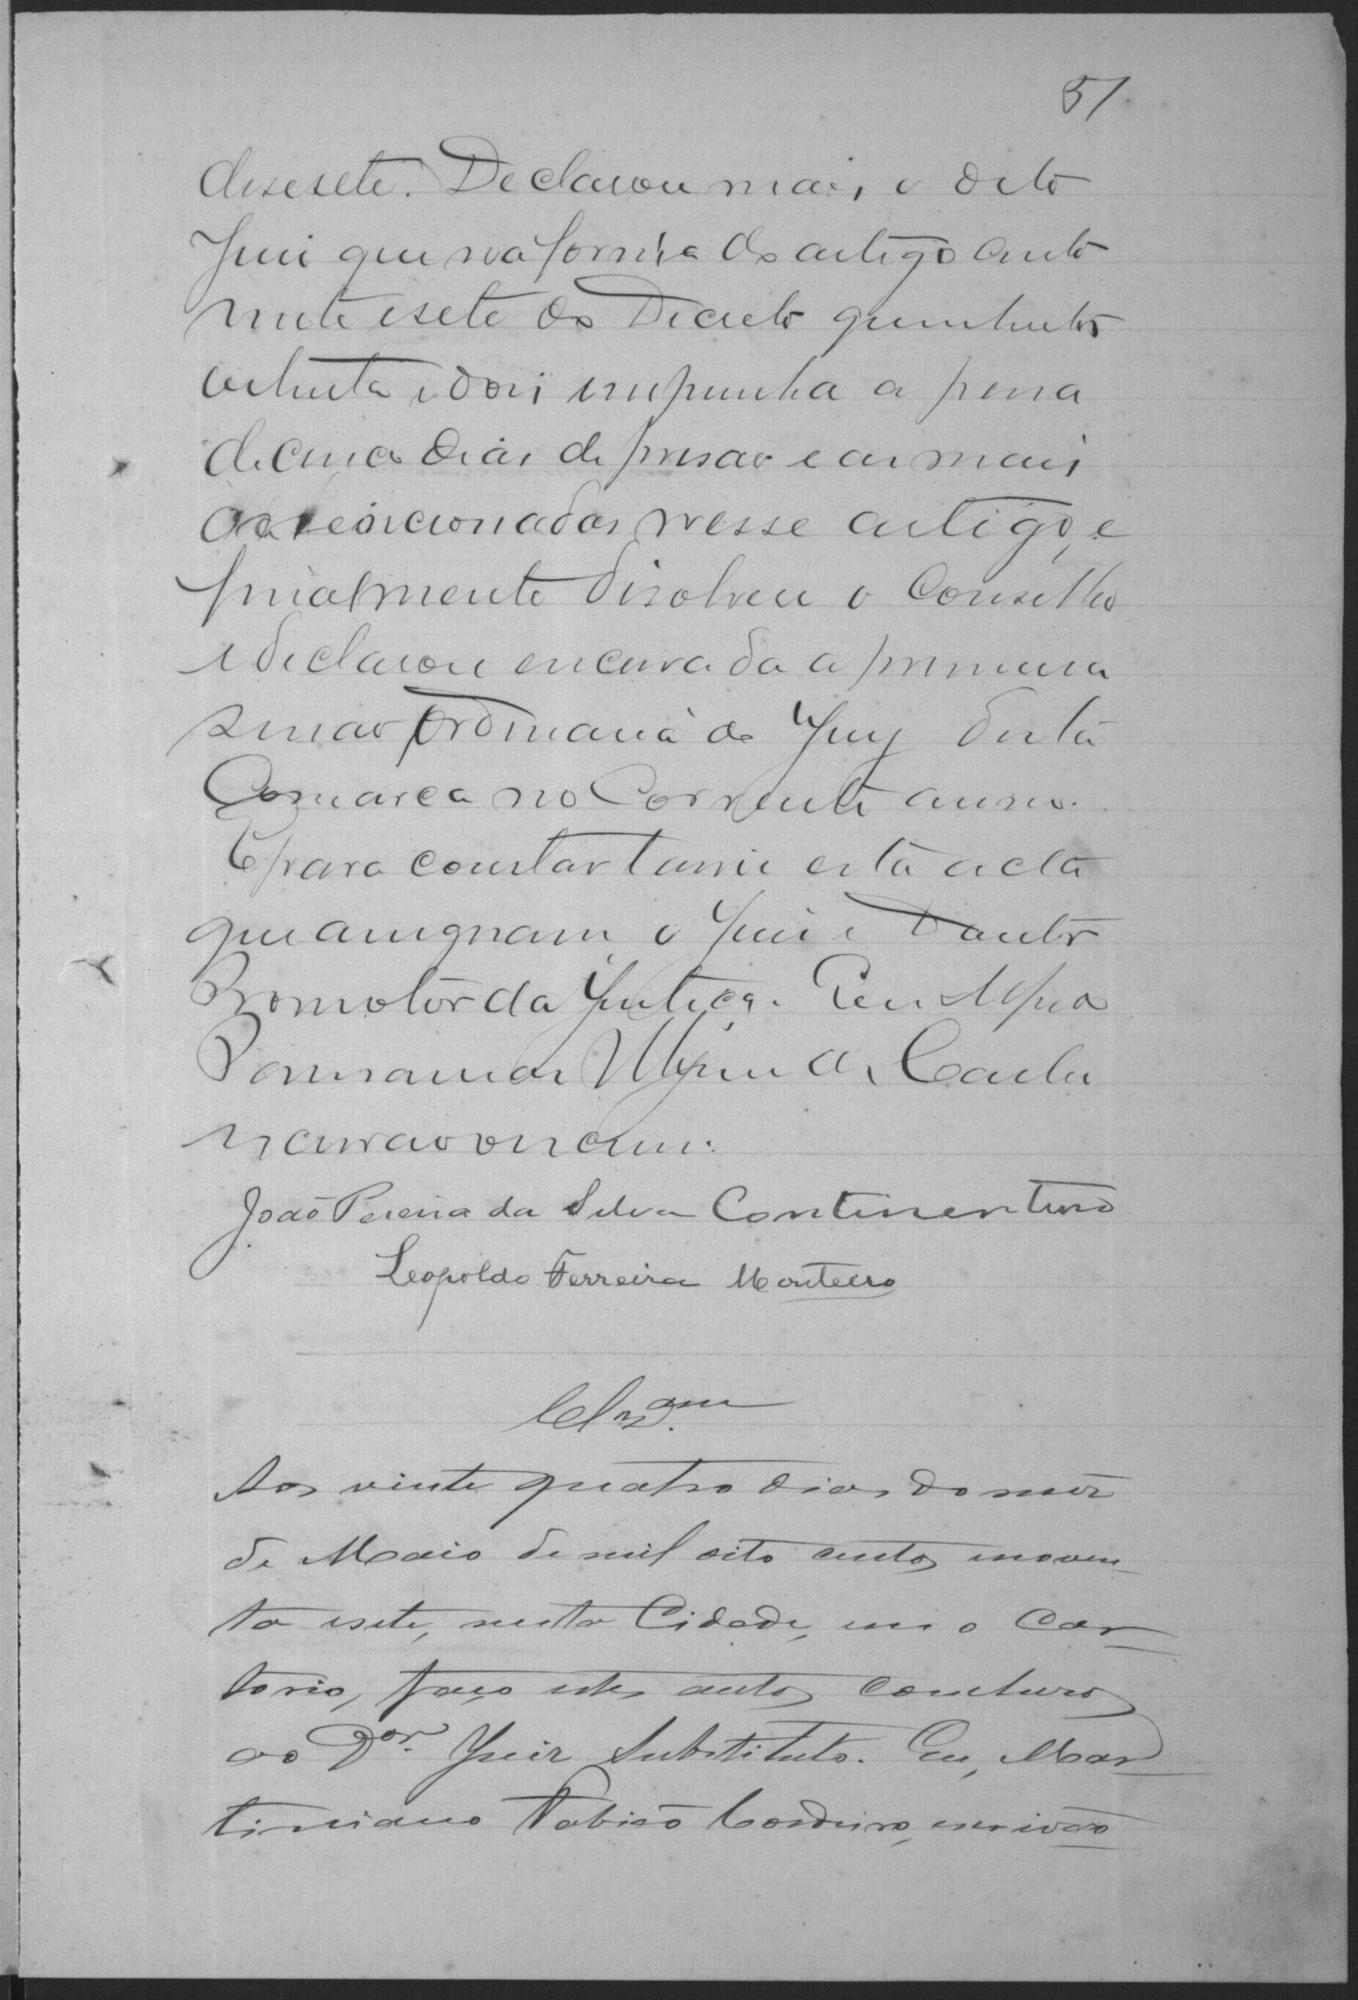 51
desesete. Declarou mais o dito
Juiz que na forma do artigo cento
vinte e sete do Decreto quinhentos
oitenta e dois impunha a pena
de cinco dias de prisão e as mais
mencionadas nesse artigo, e
finalmente disolveu o Conselho
e declarou encerrada a primeira
sessão ordinaria do Jury desta
Comarca no Corrente anno.
E para constar lavrei esta acta
que assignam o Juiz e Doutor
Promotor da Justiça. Eu
escrivão o escrevi.
João Pereira da Silva Continentino
Leopoldo Ferreira Monteiro
Clz.am
Aos vinte quatro dias do mez
de Maio de mil oito centos e noven-
ta e sete, nesta Cidade, em o Car-
torio, faço estes autos conclusos
ao Dor. Juiz Substituto. Eu, Mar-
timiano Fabião Cordeiro, escrivão